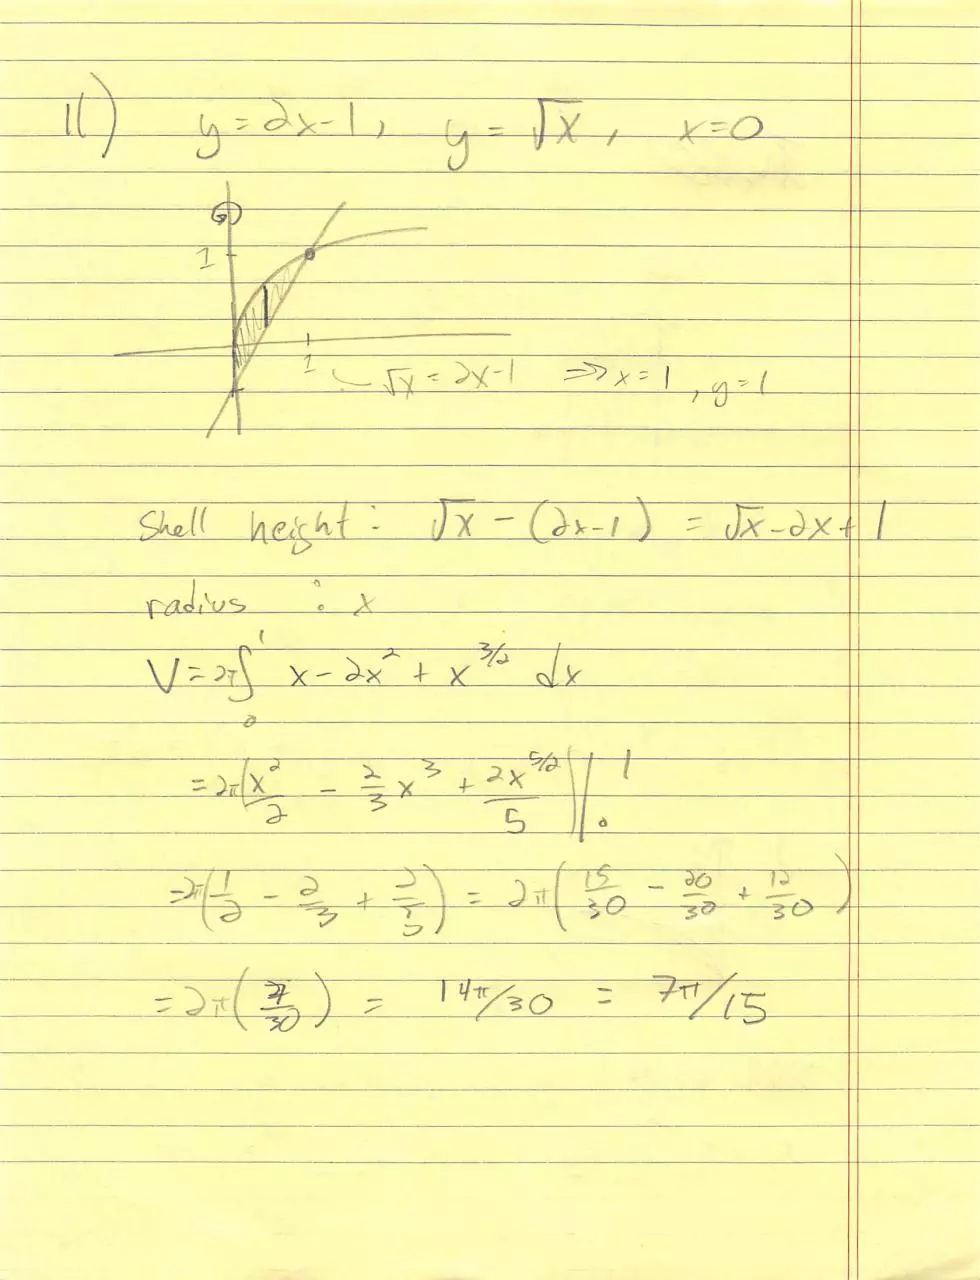 11) y = 2x-1, y = √x, x=0
1
1
√x = 2x-1 ⇒ x=1, y=1
Shell height: √x - (2x-1) = √x-2x+1
radius : x
V = 2π∫₀¹ x - 2x² + x^(3/2) dx
= 2π(x²/2 - 2/3 x³ + 2x^(5/2)/5)|₀¹
= 2π(1/2 - 2/3 + 2/5) = 2π(15/30 - 20/30 + 12/30)
= 2π(7/30) = 14π/30 = 7π/15